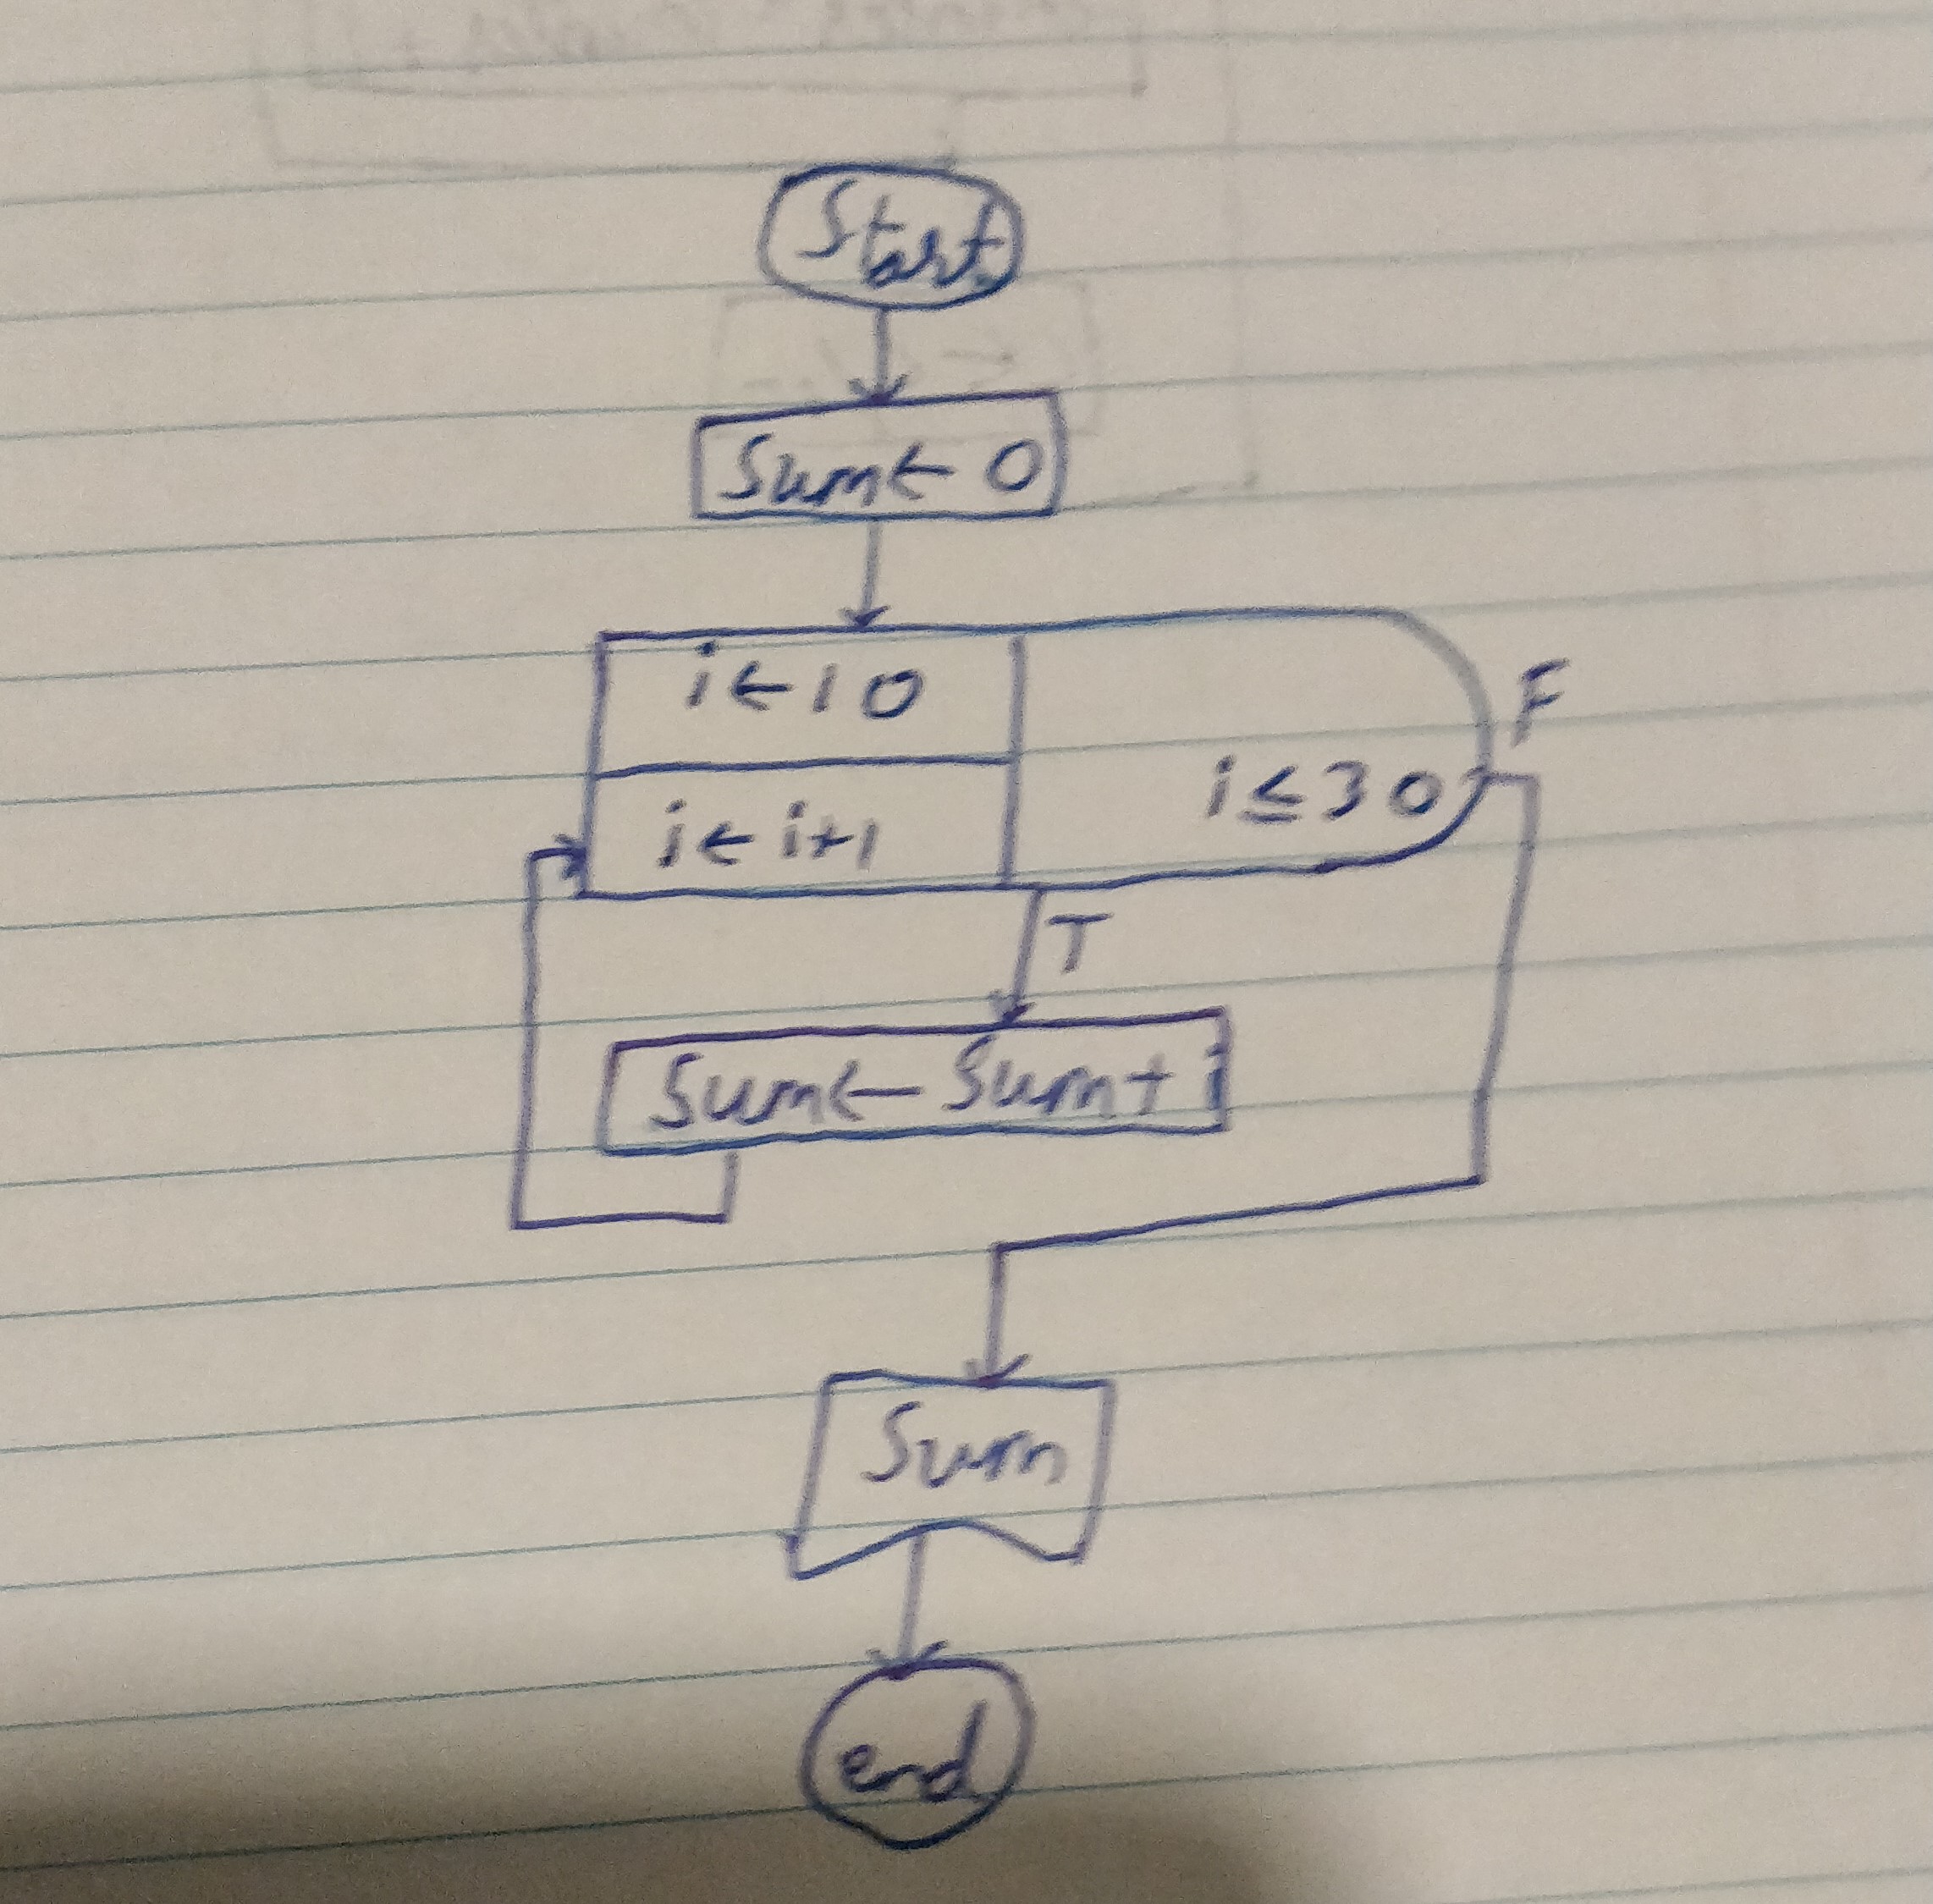 Start
Sum← 0
i←10
F
i≤30
i← i+1
T
Sum← Sum+i
Sum
end